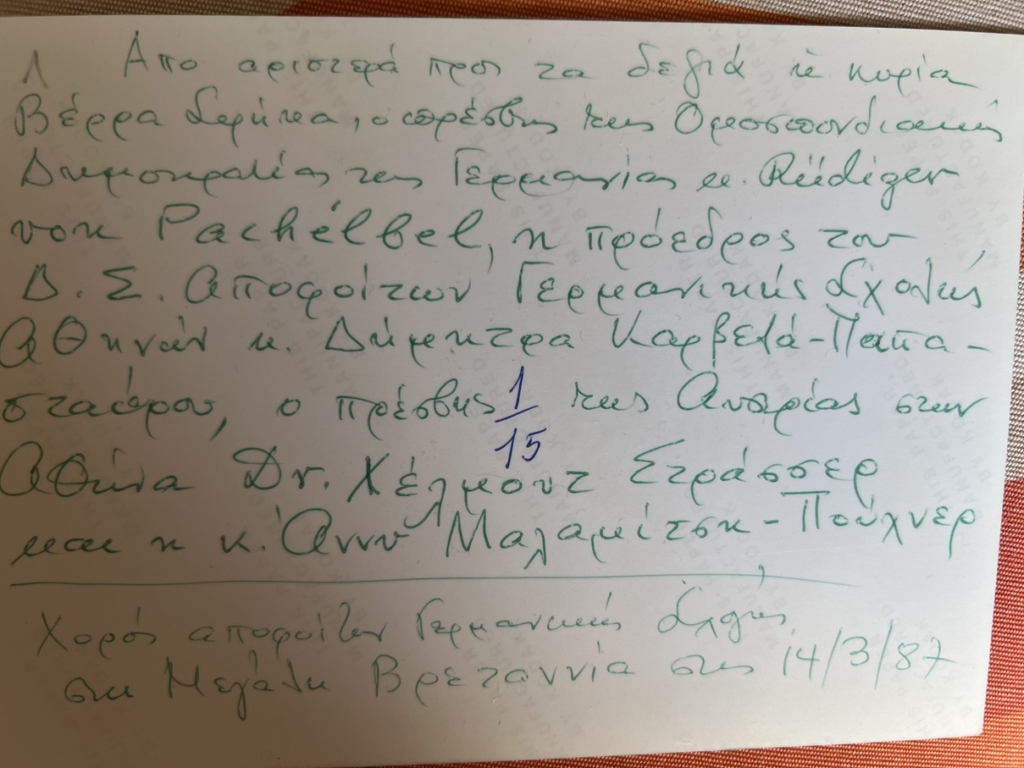 1 Από αριστερά προς τα δεξιά η κυρία
Βέρρα, ο πρέσβης της Ομοσπονδιακής
Δημοκρατίας της Γερμανίας κ. Rüdiger
von Pachélbel, η πρόεδρος του
Δ.Σ. Αποφοίτων Γερμανικής Σχολής
Αθηνών κ. Δήμητρα Καρβελά-Παπα-
σταύρου, ο πρέσβης της Αυστρίας στην
1/15
Αθήνα Dr. Χέλμουτ Στράσσερ
και η κ. Άννυ Μαλαμίτση-Πούχνερ
Χορός αποφοίτων Γερμανικής Σχολής
στη Μεγάλη Βρεταννία στις 14/3/87